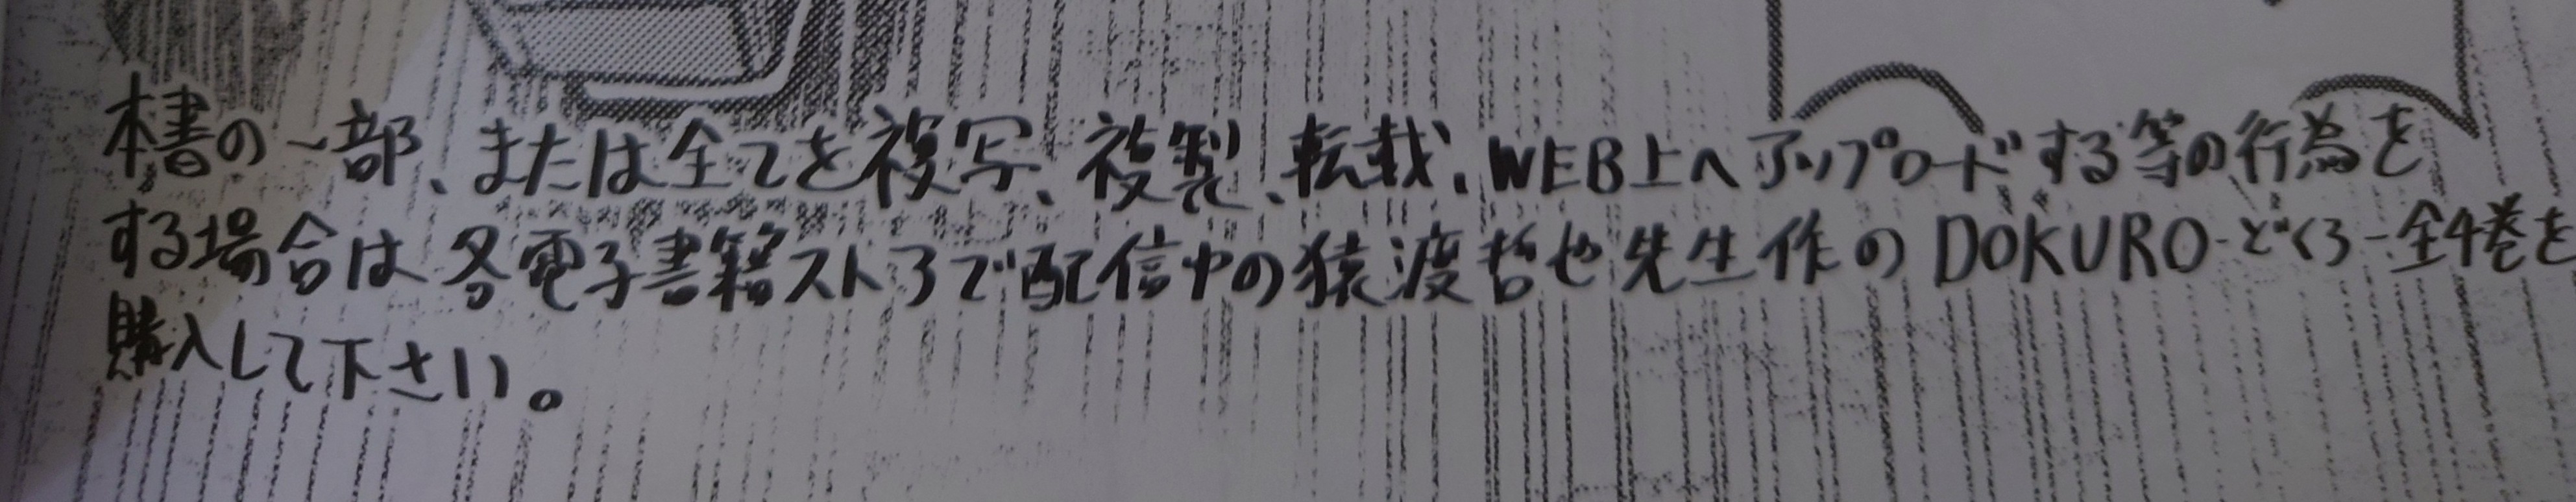 本書の一部、または全てを複写、複製、転載、WEB上へアップロードする等の行為を
する場合は各電子書籍ストアで配信中の猿渡哲也先生作のDOKURO-どくろ-全4巻を
購入して下さい。